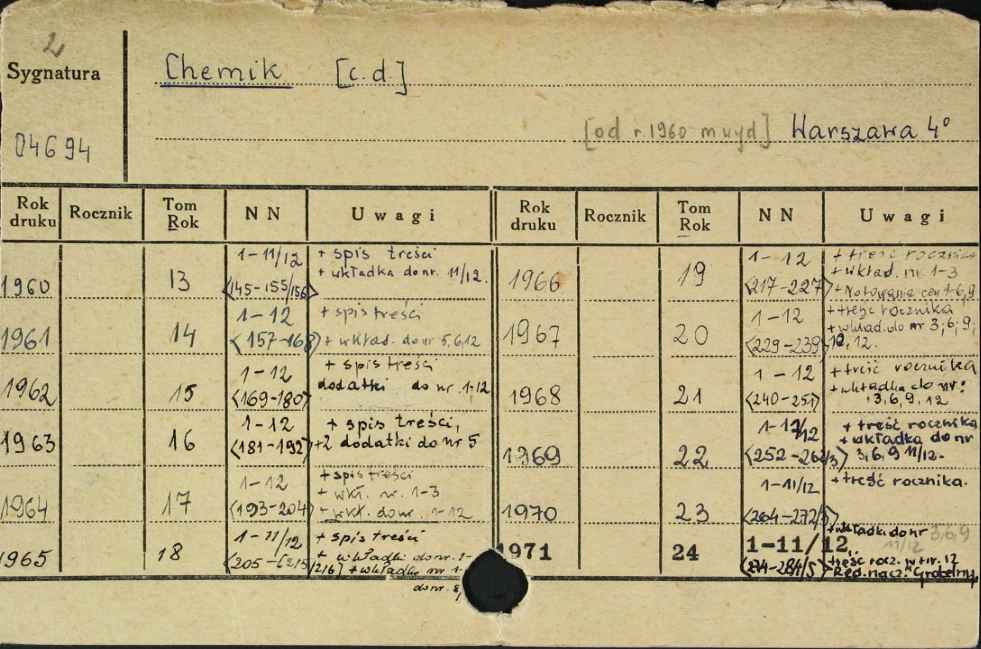 2
Sygnatura
Chemik [c.d.]
04694
[od r. 1960 m wyd] Warszawa 4°
Rok druku Rocznik Tom Rok NN Uwagi Rok druku Rocznik Tom Rok NN Uwagi
1960 13 1-11/12 <145-155/156> + spis treści
+ wkładka do nr. 11/12.
1961 14 1-12 <157-168> + spis treści
+ wkład. do nr 5,6,12
1962 15 1-12 <169-180> + spis treści
dodatki do nr. 1,12
1963 16 1-12 <181-192> + spis treści,
+2 dodatki do nr 5
1964 17 1-12 <193-204> + spis treści
+ wkł. nr. 1-3
+ wkł. do nr. 1-12
1965 18 1-11/12 <205-215/216> + spis treści
+ wkładki do nr. 1-
+ wkładki nr 1-
do nr. 8,
1966 19 1-12 <217-227> + treść rocznika
+ wkład. nr. 1-3
+ Notowania cen 1-6,9
1967 20 1-12 <229-239> + treść rocznika
+ wkład. do nr 3,6,9,
10,12.
1968 21 1-12 <240-251> + treść rocznika
+ wkładka do nr:
3,6,9,12
1969 22 1-11/12 <252-262/3> + treść rocznika
+ wkładka do nr
3,6,9 11/12.
1970 23 1-11/12 <264-272/3> + treść rocznika.
1971 24 1-11/12, <274-284/5> + wkładki do nr 3,6,9
11/12
+ treść rocz. w nr. 12
Red. nacz. Grobelny